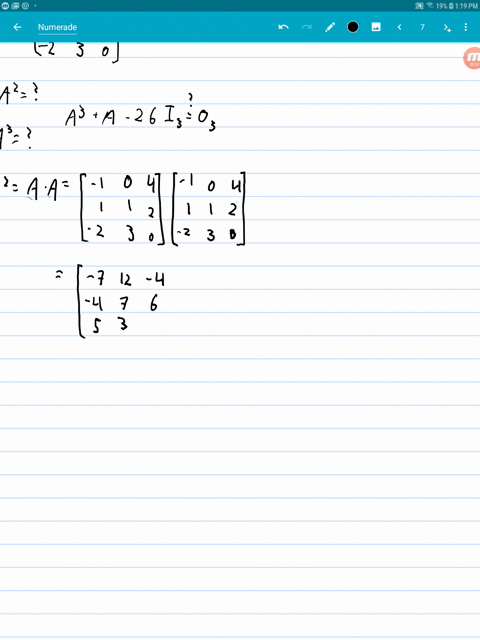 19% 1:19 PM
Numerade 7
[-2 3 0]
A²=?
A³ + A - 26 I₃ ≟ O₃
A³=?
² = A·A = [-1 0 4; 1 1 2; -2 3 0] [-1 0 4; 1 1 2; -2 3 0]
= [-7 12 -4
-4 7 6
5 3